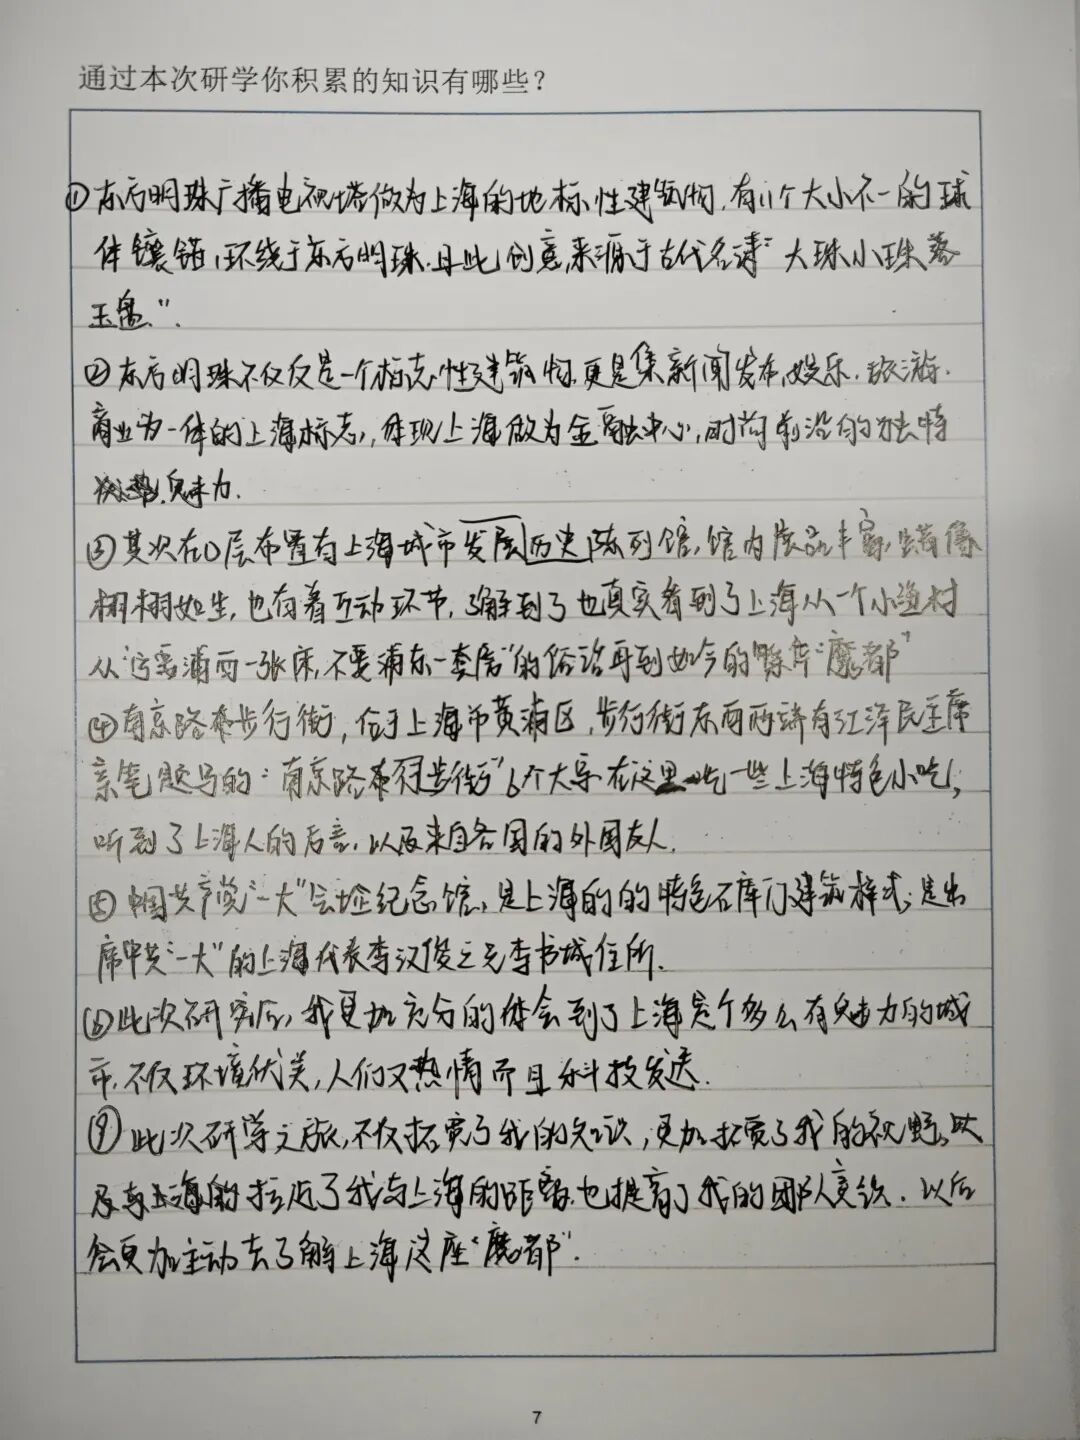 通过本次研学你积累的知识有哪些?
①东方明珠广播电视塔做为上海的地标性建筑物,有11个大小不一的球
体镶错,环绕于东方明珠.且此创意,来源于古代名诗"大珠小珠落
玉盘".
②东方明珠不仅仅是一个标志性建筑物,更是集新闻发布,娱乐.旅游.
商业为一体的上海标志,体现上海做为金融中心,时尚前沿的独特
魅力.
③其次在0层布置有上海城市发展历史陈列馆,馆内展品丰富,蜡像
栩栩如生,也有着互动环节,了解到了也真实看到了上海从一个小渔村
从"宁要浦西一张床,不要浦东一套房"的俗语再到如今的"魔都"
④南京路步行街,位于上海市黄浦区,步行街东西两端有江泽民主席
亲笔题写的"南京路步行街"6个大字在这里吃一些上海特色小吃,
听到了上海人的方言,以及来自各国的外国友人.
⑤中国共产党"一大"会址纪念馆,是上海的的特色石库门建筑样式;是出
席中共"一大"的上海代表李汉俊之兄李书城住所.
⑥此次研究后,我更加充分的体会到了上海是个多么有魅力的城
市,不仅环境优美,人们又热情而且科技发达.
⑦此次研学之旅,不仅拓宽了我的知识,更加拓宽了我的视野,以
及上海的拉近了我与上海的距离.也提高了我的团队意识.以后
会更加主动去了解上海这座"魔都".
7